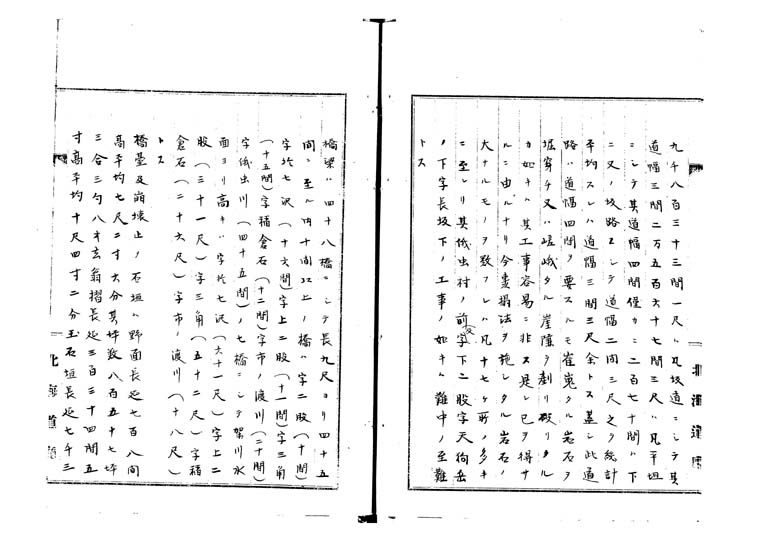 九千八百三十三間一尺ハ凡坂道ニシテ其
道幅三間二万五百六十七間三尺ハ凡平坦
ニシテ其道幅四間僅カニ二百七十間ハ下
ニ又ノ坂路ニシテ道幅二間三尺之ヲ総計
平均スレハ道幅三間三尺余トス蓋シ此道
路ハ道幅四間ヲ要スルモ崔嵬タル岩石ヲ
堀穿チ又ハ嵯峨タル崖障ヲ剷リ毀リタル
カ如キハ其工事容易ニ非ス是レ已ヲ得サ
ルニ由ルナリ今煑搨法ヲ施シタル岩石ノ
大ナルモノヲ数フレハ凡十七ヶ所ノ多キ
ニ至レリ其伐出村ノ前字下二股字天狗岳
ノ下字長坂下ノ工事ノ如キハ難中ノ至難
トス
橋梁ハ四十八橋ニシテ長九尺ヨリ四十五
間ニ至ル内十間以上ノ橋ハ字二股(十間)
字於七沢(十六間)字上二股(十一間)字三角
(十五間)字稲倉石(十二間)字市ノ渡川(二十間)
字伐出川(四十五間)ノ七橋ニシテ架川水
面ヨリ高キハ字於七沢(六十一尺)字上二
股(三十一尺)字三角(五十二尺)字稲
倉石(二十六尺)字市ノ渡川(十八尺)
トス
橋臺及崩壊止ノ石垣ハ野面長延七百八間
高平均七尺二寸六分其坪数八百五十七坪
三合三勺八才玄翁摺長延三百三十四間五
寸高平均十尺四寸二分玉石垣長延七千三
北海道廳